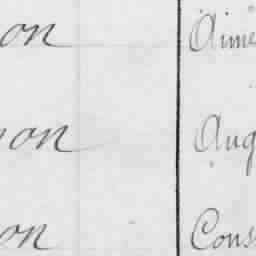 on Aime
on Aug
on Cons